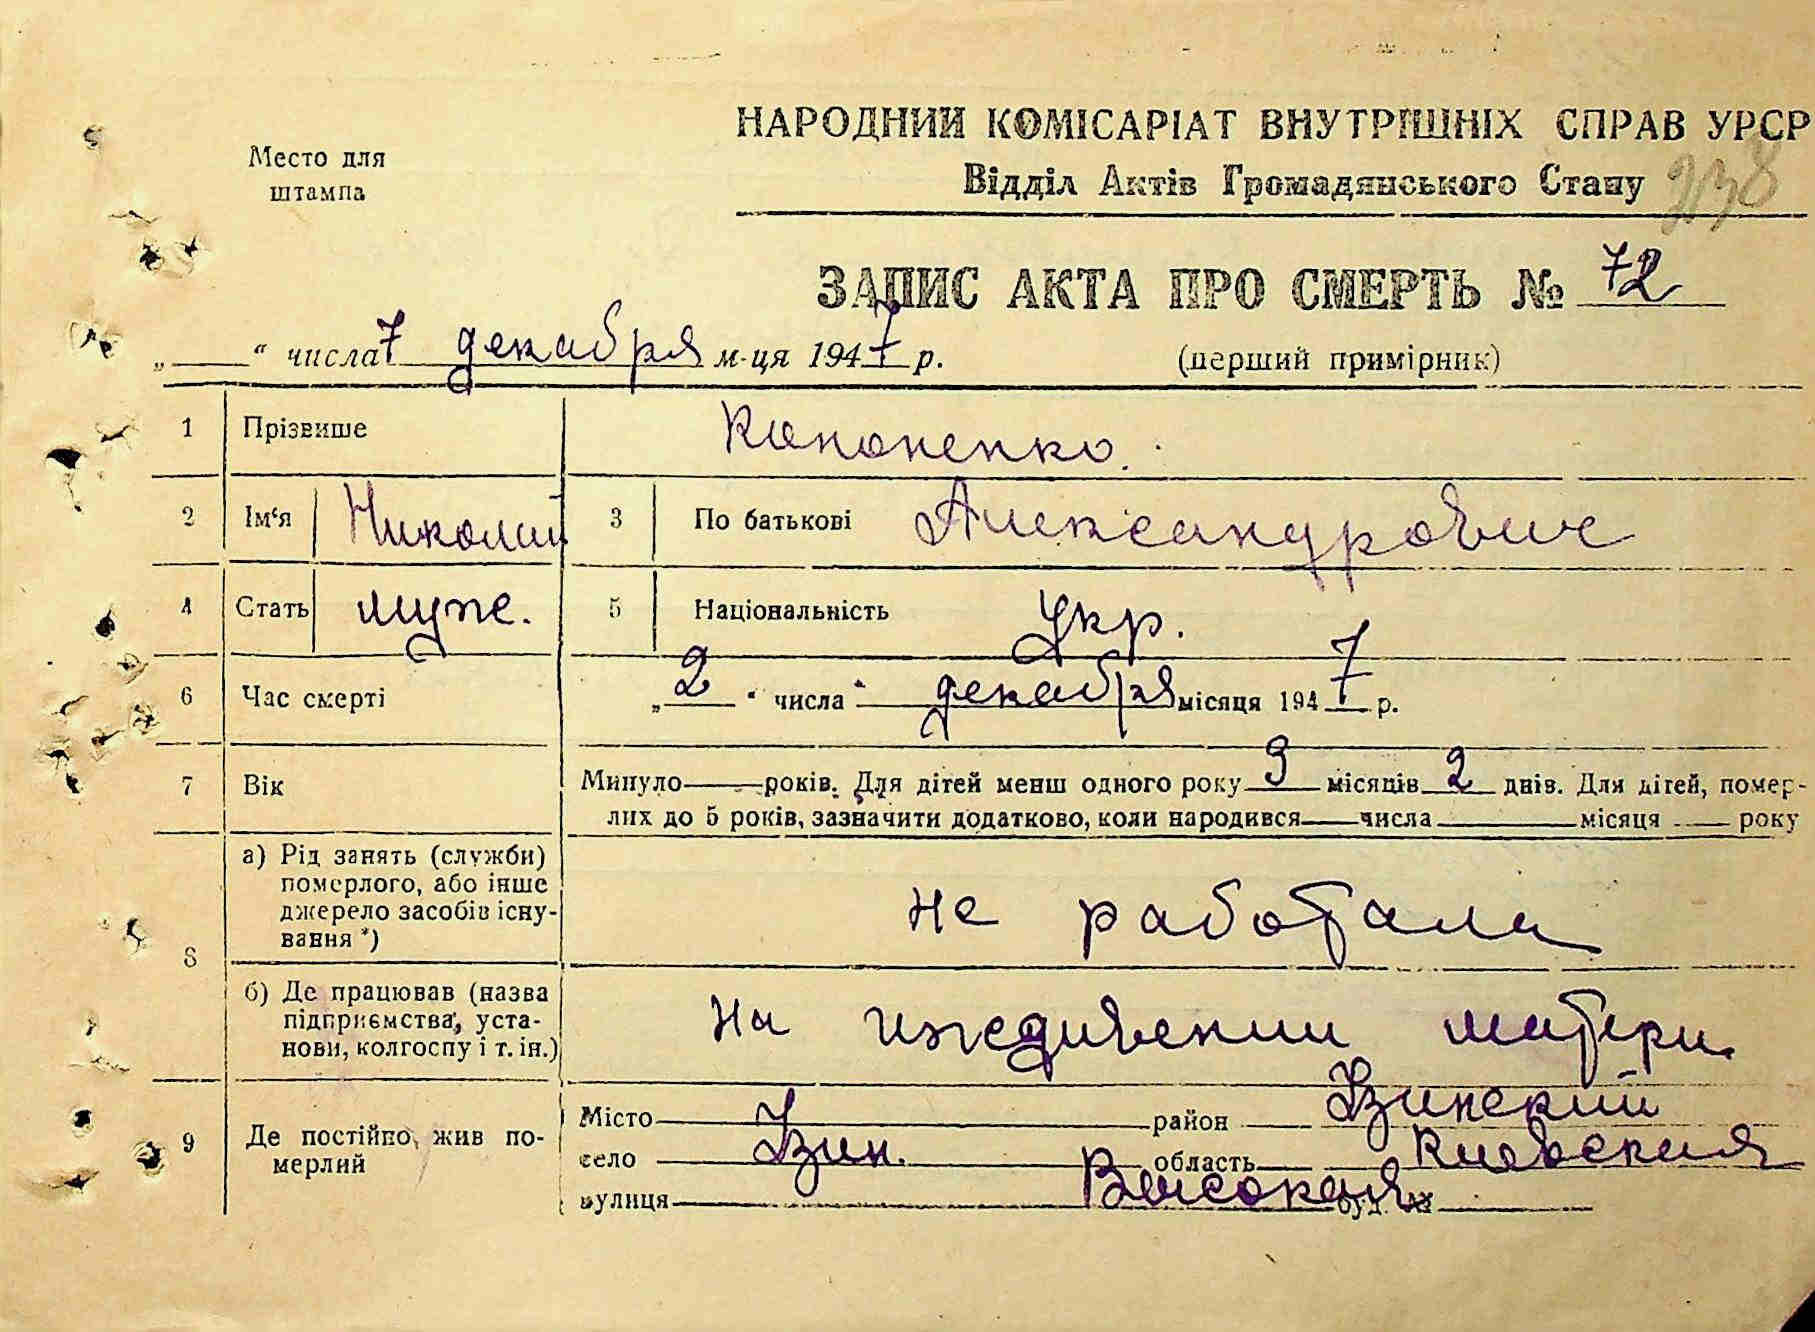 НАРОДНИЙ КОМІСАРІАТ ВНУТРІШНІХ СПРАВ УРСР
Место для
штампа
Відділ Актів Громадянського Стану 238
ЗАПИС АКТА ПРО СМЕРТЬ № 72
„ “ числа 7 декабря м-ця 1947 р. (перший примірник)
1 Прізвише Кононенко.
2 Ім‘я Николай 3 По батькові Александрович
4 Стать муж. 5 Національність укр.
6 Час смерті „2“ числа декабря місяця 1947 р.
7 Вік Минуло років. Для дітей менш одного року 9 місяців 2 днів. Для дітей, помер-
лих до 5 років, зазначити додатково, коли народився числа місяця року
8 а) Рід занять (служби)
померлого, або інше
джерело засобів існу-
вання *) не работала
б) Де працював (назва
підприємства, уста-
нови, колгоспу і т. ін.) На иждивении матери
9 Де постійно жив по-
мерлий
Місто район Узинский
село Узин. область Киевская
вулиця Высокая буд. №